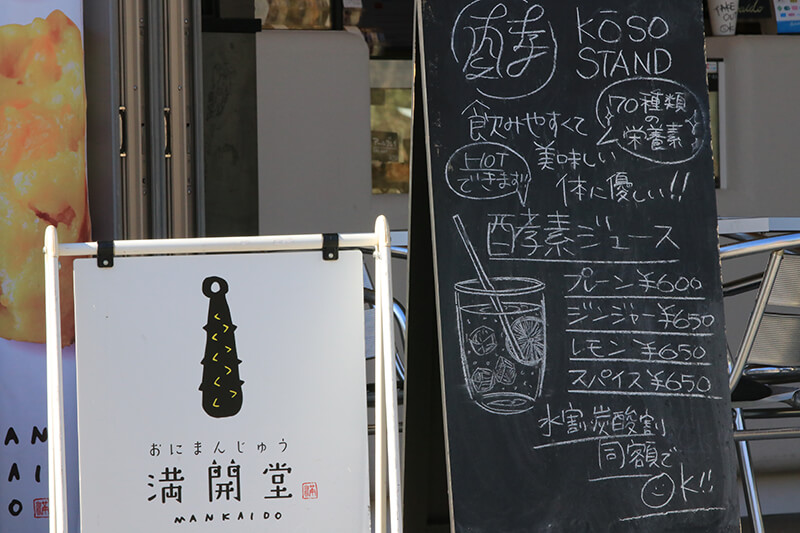 おにまんじゅう
満開堂
MANKAIDO
酵
KŌSO
STAND
70種類
の
栄養素
飲みやすくて
美味しい
体に優しい!!
HOT
できます
酵素ジュース
プレーン¥600
ジンジャー¥650
レモン¥650
スパイス¥650
水割炭酸割
同額で
OK!!
TAKE
OUT